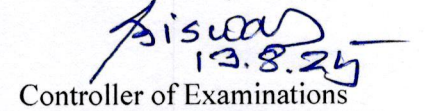 Biswas
13.8.25
Controller of Examinations